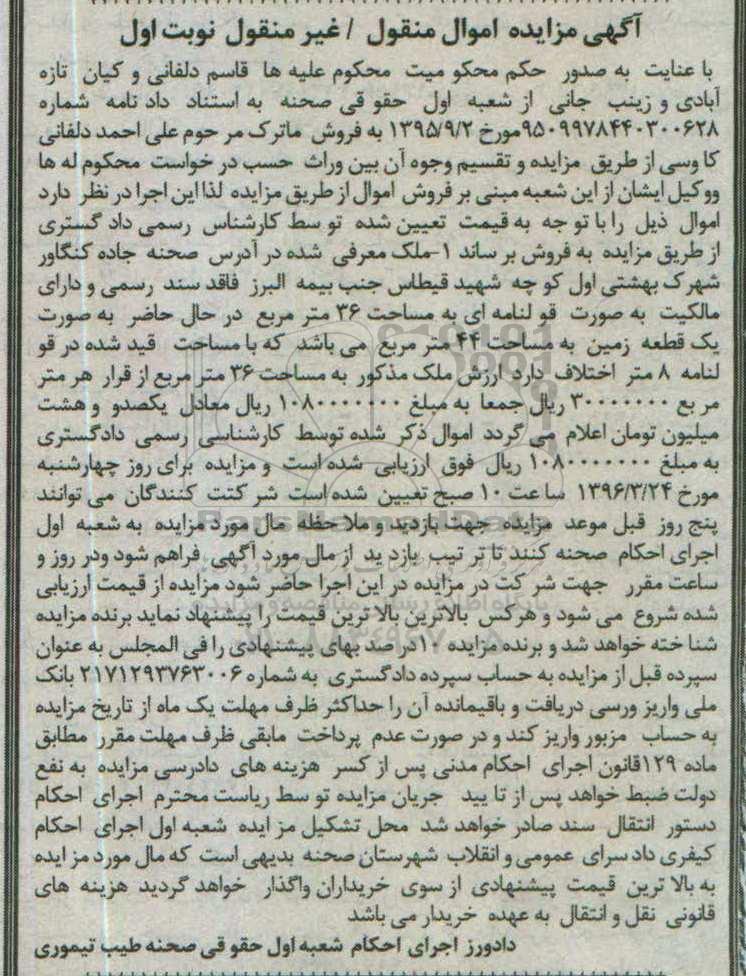 آگهی مزایده اموال منقول / غیر منقول نوبت اول
با عنایت به صدور حکم محکو میت محکوم علیه ها قاسم دلفانی و کیان تازه
آبادی و زینب جانی از شعبه اول حقو قی صحنه به استناد داد نامه شماره
۹۵۰۹۹۷۸۴۴۰۳۰۰۶۲۸مورخ ۱۳۹۵/۹/۲ به فروش ماترک مر حوم علی احمد دلفانی
کا وسی از طریق مزایده و تقسیم وجوه آن بین وراث حسب در خواست محکوم له ها
ووکیل ایشان از این شعبه مبنی بر فروش اموال از طریق مزایده لذا این اجرا در نظر دارد
اموال ذیل را با تو جه به قیمت تعیین شده تو سط کارشناس رسمی داد گستری
از طریق مزایده به فروش بر ساند ۱-ملک معرفی شده در آدرس صحنه جاده کنگاور
شهرک بهشتی اول کو چه شهید قیطاس جنب بیمه البرز فاقد سند رسمی و دارای
مالکیت به صورت قو لنامه ای به مساحت ۳۶ متر مربع در حال حاضر به صورت
یک قطعه زمین به مساحت ۴۴ متر مربع می باشد که با مساحت قید شده در قو
لنامه ۸ متر اختلاف دارد ارزش ملک مذکور به مساحت ۳۶ متر مربع از قرار هر متر
مر بع ۳۰۰۰۰۰۰۰ ریال جمعا به مبلغ ۱۰۸۰۰۰۰۰۰۰ ریال معادل یکصدو و هشت
میلیون تومان اعلام می گردد اموال ذکر شده توسط کارشناسی رسمی دادگستری
به مبلغ ۱۰۸۰۰۰۰۰۰۰ ریال فوق ارزیابی شده است و مزایده برای روز چهارشنبه
مورخ ۱۳۹۶/۳/۲۴ ساعت ۱۰ صبح تعیین شده است شر کتت کنندگان می توانند
پنج روز قبل موعد مزایده جهت بازدید و ملا حظه مال مورد مزایده به شعبه اول
اجرای احکام صحنه کنند تا تر تیب بازد ید از مال مورد آگهی فراهم شود ودر روز و
ساعت مقرر جهت شر کت در مزایده در این اجرا حاضر شود مزایده از قیمت ارزیابی
شده شروع می شود و هرکس بالاترین بالا ترین قیمت را پیشنهاد نماید برنده مزایده
شنا خته خواهد شد و برنده مزایده ۱۰درصد بهای پیشنهادی را فی المجلس به عنوان
سپرده قبل از مزایده به حساب سپرده دادگستری به شماره ۲۱۷۱۲۹۳۷۶۳۰۰۶ بانک
ملی واریز ورسی دریافت و باقیمانده آن را حداکثر ظرف مهلت یک ماه از تاریخ مزایده
به حساب مزبور واریز کند و در صورت عدم پرداخت مابقی ظرف مهلت مقرر مطابق
ماده ۱۲۹قانون اجرای احکام مدنی پس از کسر هزینه های دادرسی مزایده به نفع
دولت ضبط خواهد پس از تا یید جریان مزایده تو سط ریاست محترم اجرای احکام
دستور انتقال سند صادر خواهد شد محل تشکیل مز ایده شعبه اول اجرای احکام
کیفری داد سرای عمومی و انقلاب شهرستان صحنه بدیهی است که مال مورد مز ایده
به بالا ترین قیمت پیشنهادی از سوی خریداران واگذار خواهد گردید هزینه های
قانونی نقل و انتقال به عهده خریدار می باشد
دادورز اجرای احکام شعبه اول حقو قی صحنه طیب تیموری
ParsNamadData